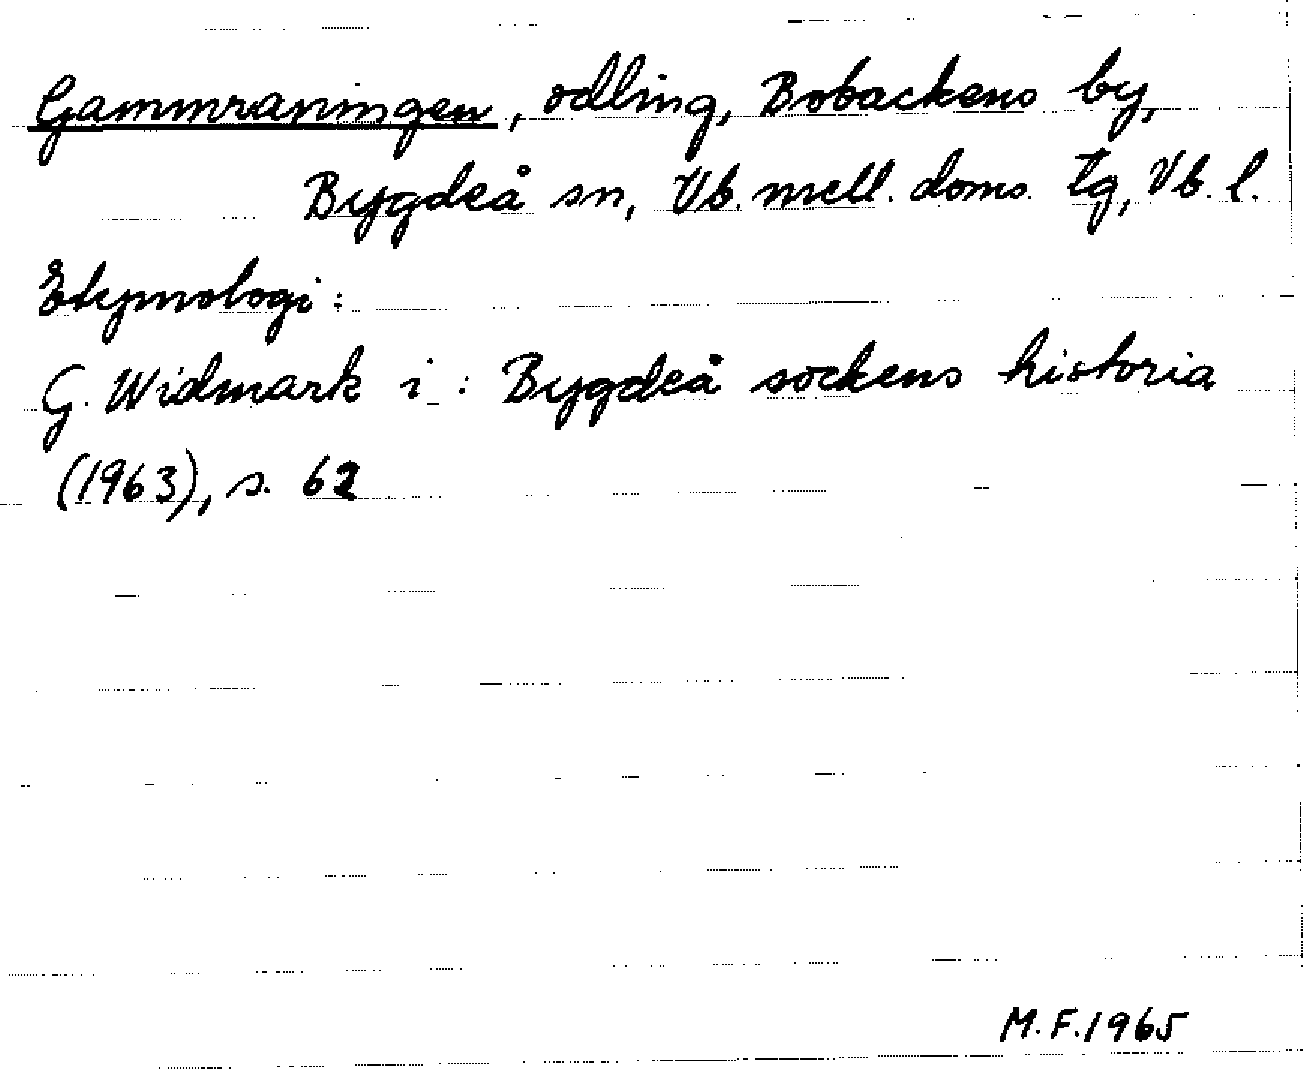 Gammraningen, odling, Bobackens by,
Bygdeå sn, Vb. mell. doms. tg, Vb. l.
Etymologi:
G. Widmark i: Bygdeå sockens historia
(1963), s. 62
M.F.1965